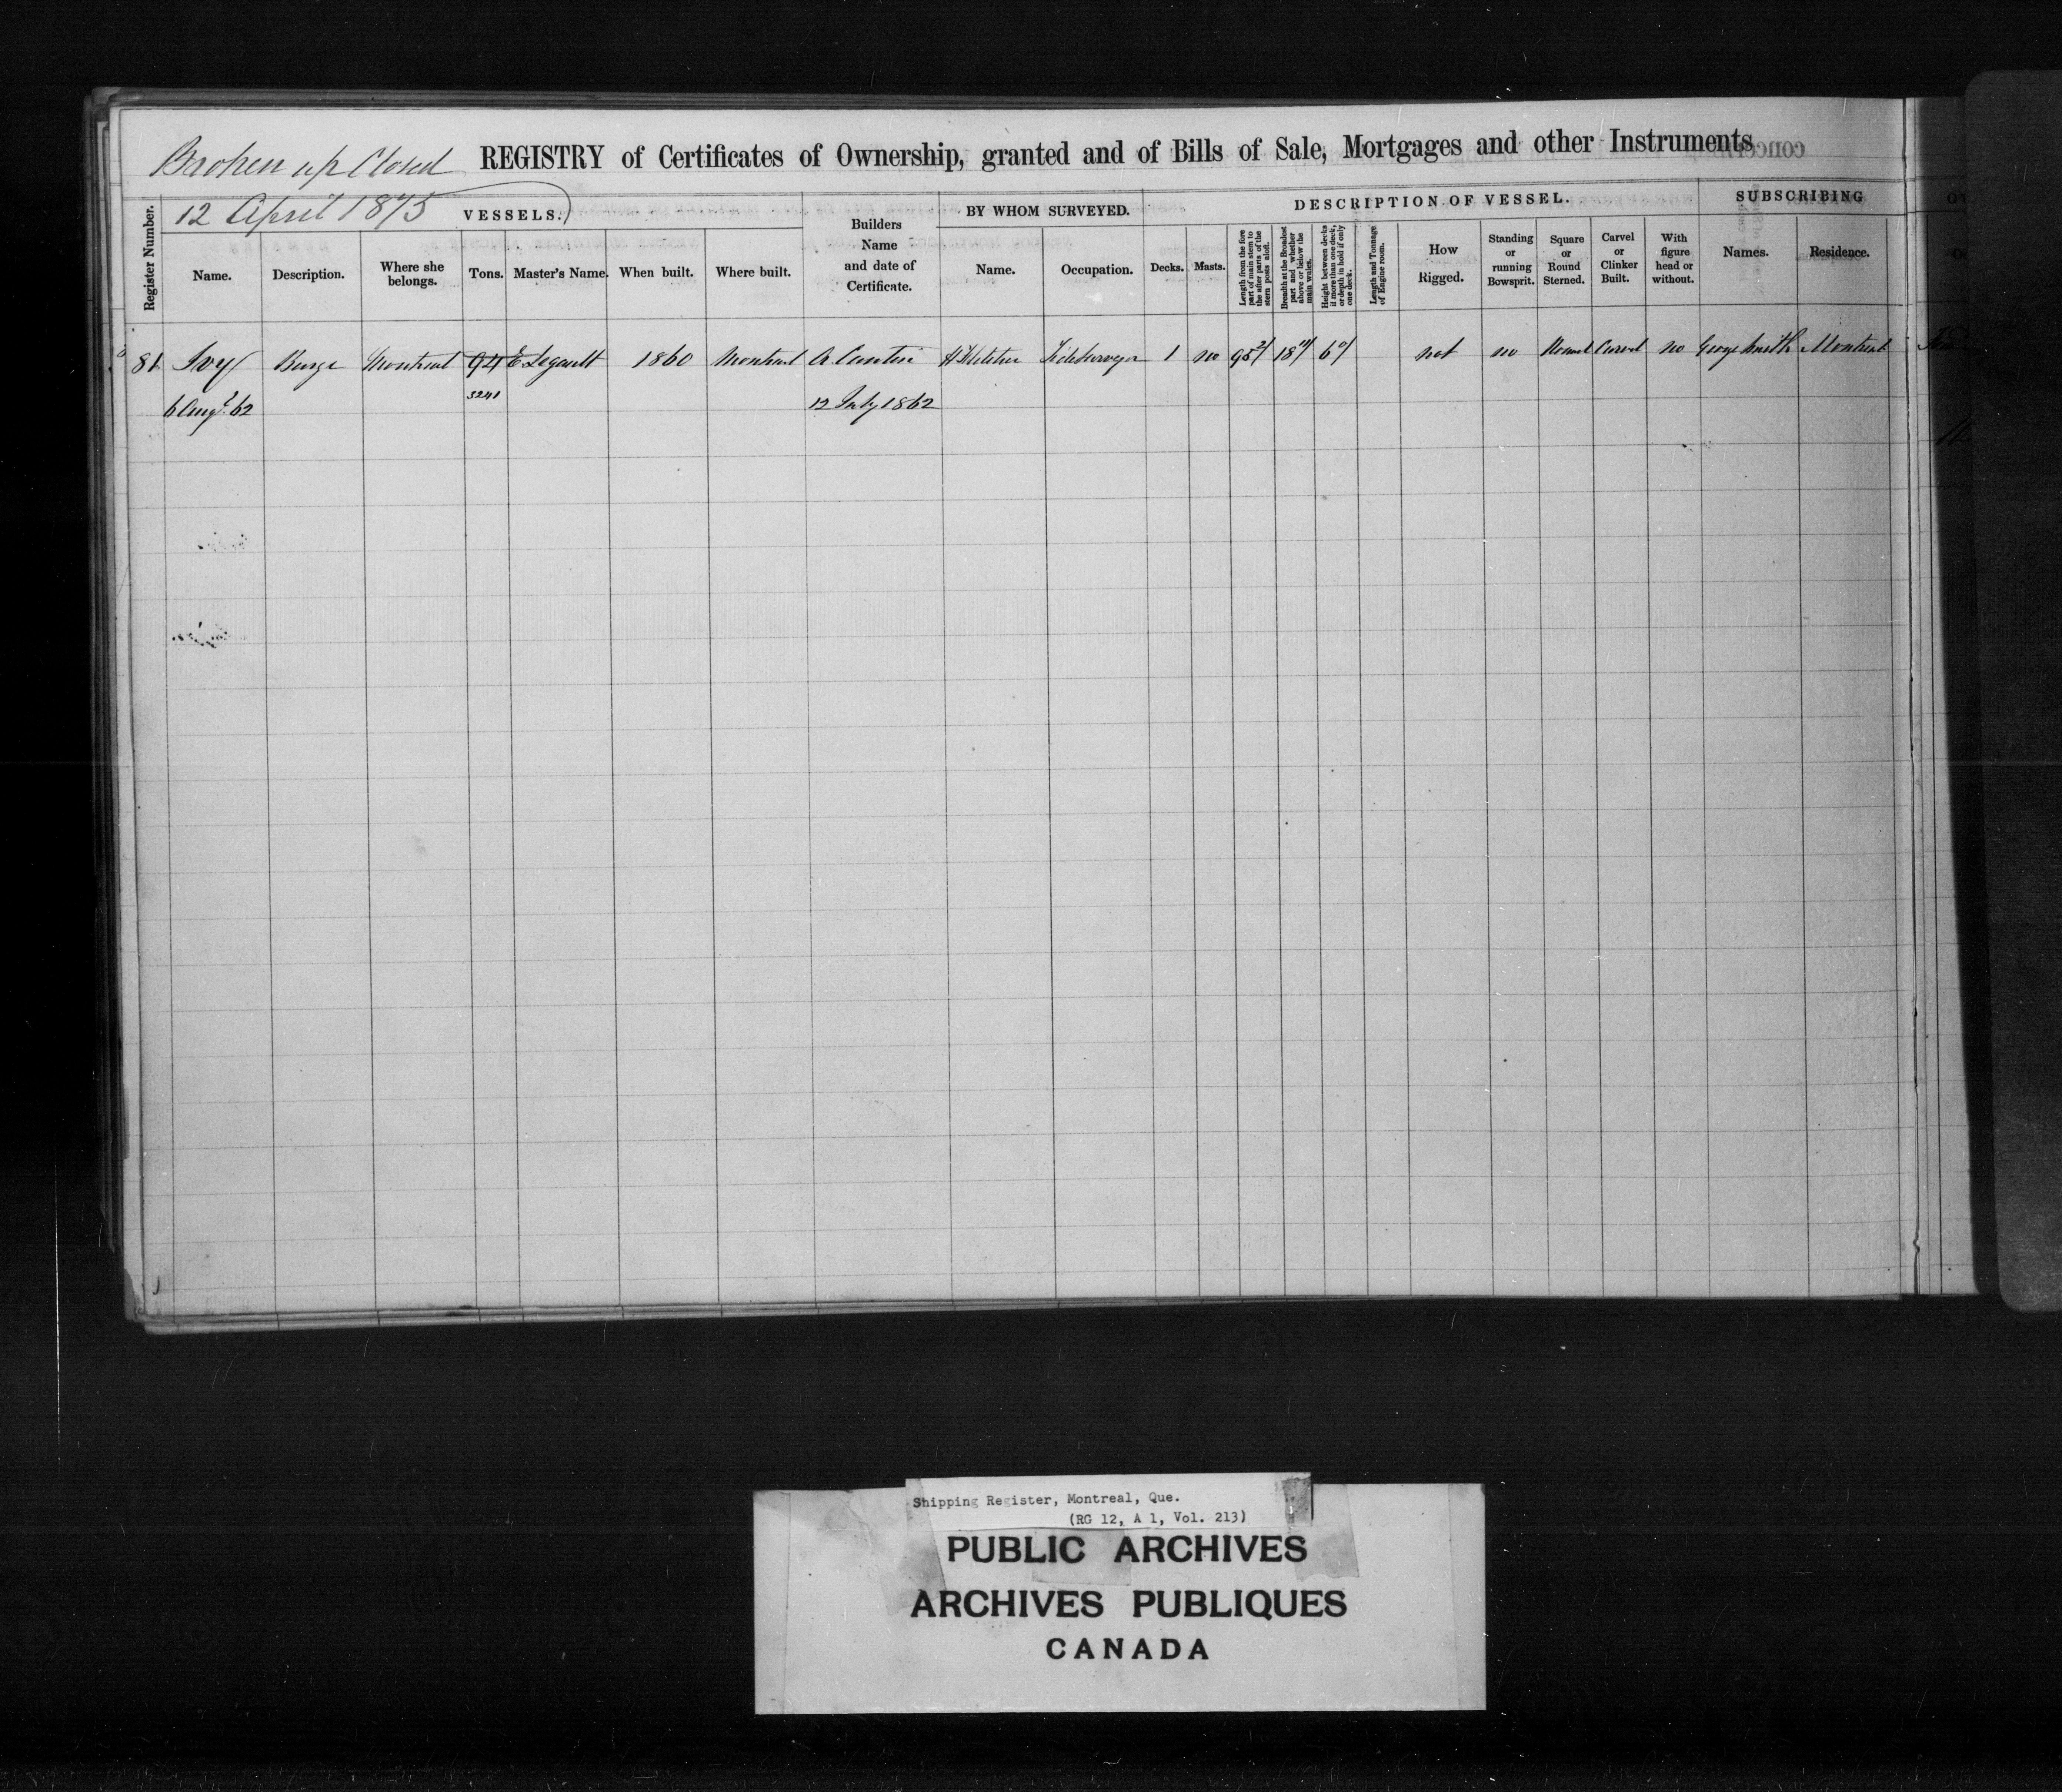 Broken up Closed
12 April 1875
REGISTRY of Certificates of Ownership, granted and of Bills of Sale, Mortgages and other Instruments
Register Number.
VESSELS.
Name.
Description.
Where she belongs.
Tons.
Master's Name.
When built.
Where built.
Builders Name and date of Certificate.
BY WHOM SURVEYED.
Name.
Occupation.
DESCRIPTION OF VESSEL.
Decks.
Masts.
Length from the fore part of main stem to the after parts of the stern posts aloft.
Breadth at the Broadest part and whether above or below the main wales.
Height between decks if more than one deck, or depth in hold if only one deck.
Length and Tonnage of Engine room.
How Rigged.
Standing or running Bowsprit.
Square or Round Sterned.
Carvel or Clinker Built.
With figure head or without.
SUBSCRIBING
Names.
Residence.
81 Ivy Barge Montreal 94 E Legault 1860 Montreal A. Cantin 1 no not no Round Carvel no George Smith Montreal
6 Augt. 62 3241 12 July 1862
Shipping Register, Montreal, Que.
(RG 12, A 1, Vol. 213)
PUBLIC ARCHIVES
ARCHIVES PUBLIQUES
CANADA